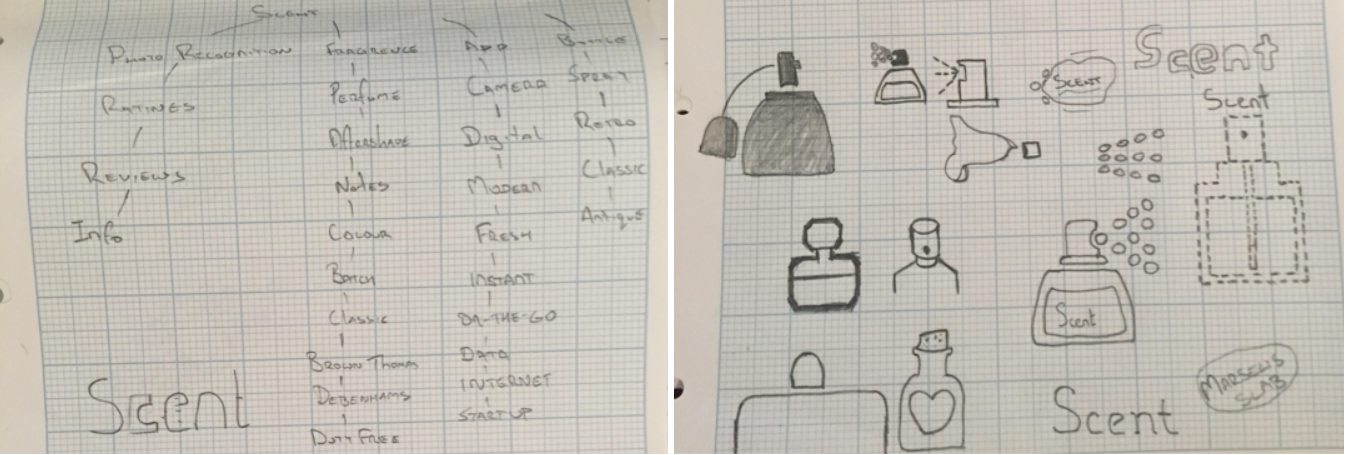 Scent
Photo Recognition
Ratings
Reviews
Info
Fragrence
Perfume
Aftershave
Notes
Colour
Batch
Classic
Brown Thomas
Debenhams
Duty Free
App
Camera
Digital
Modern
Fresh
Instant
On-the-go
Data
Internet
Startup
Bottle
Spray
Retro
Classic
Antique
Scent
Scent
Scent
Scent
Scent
Scent